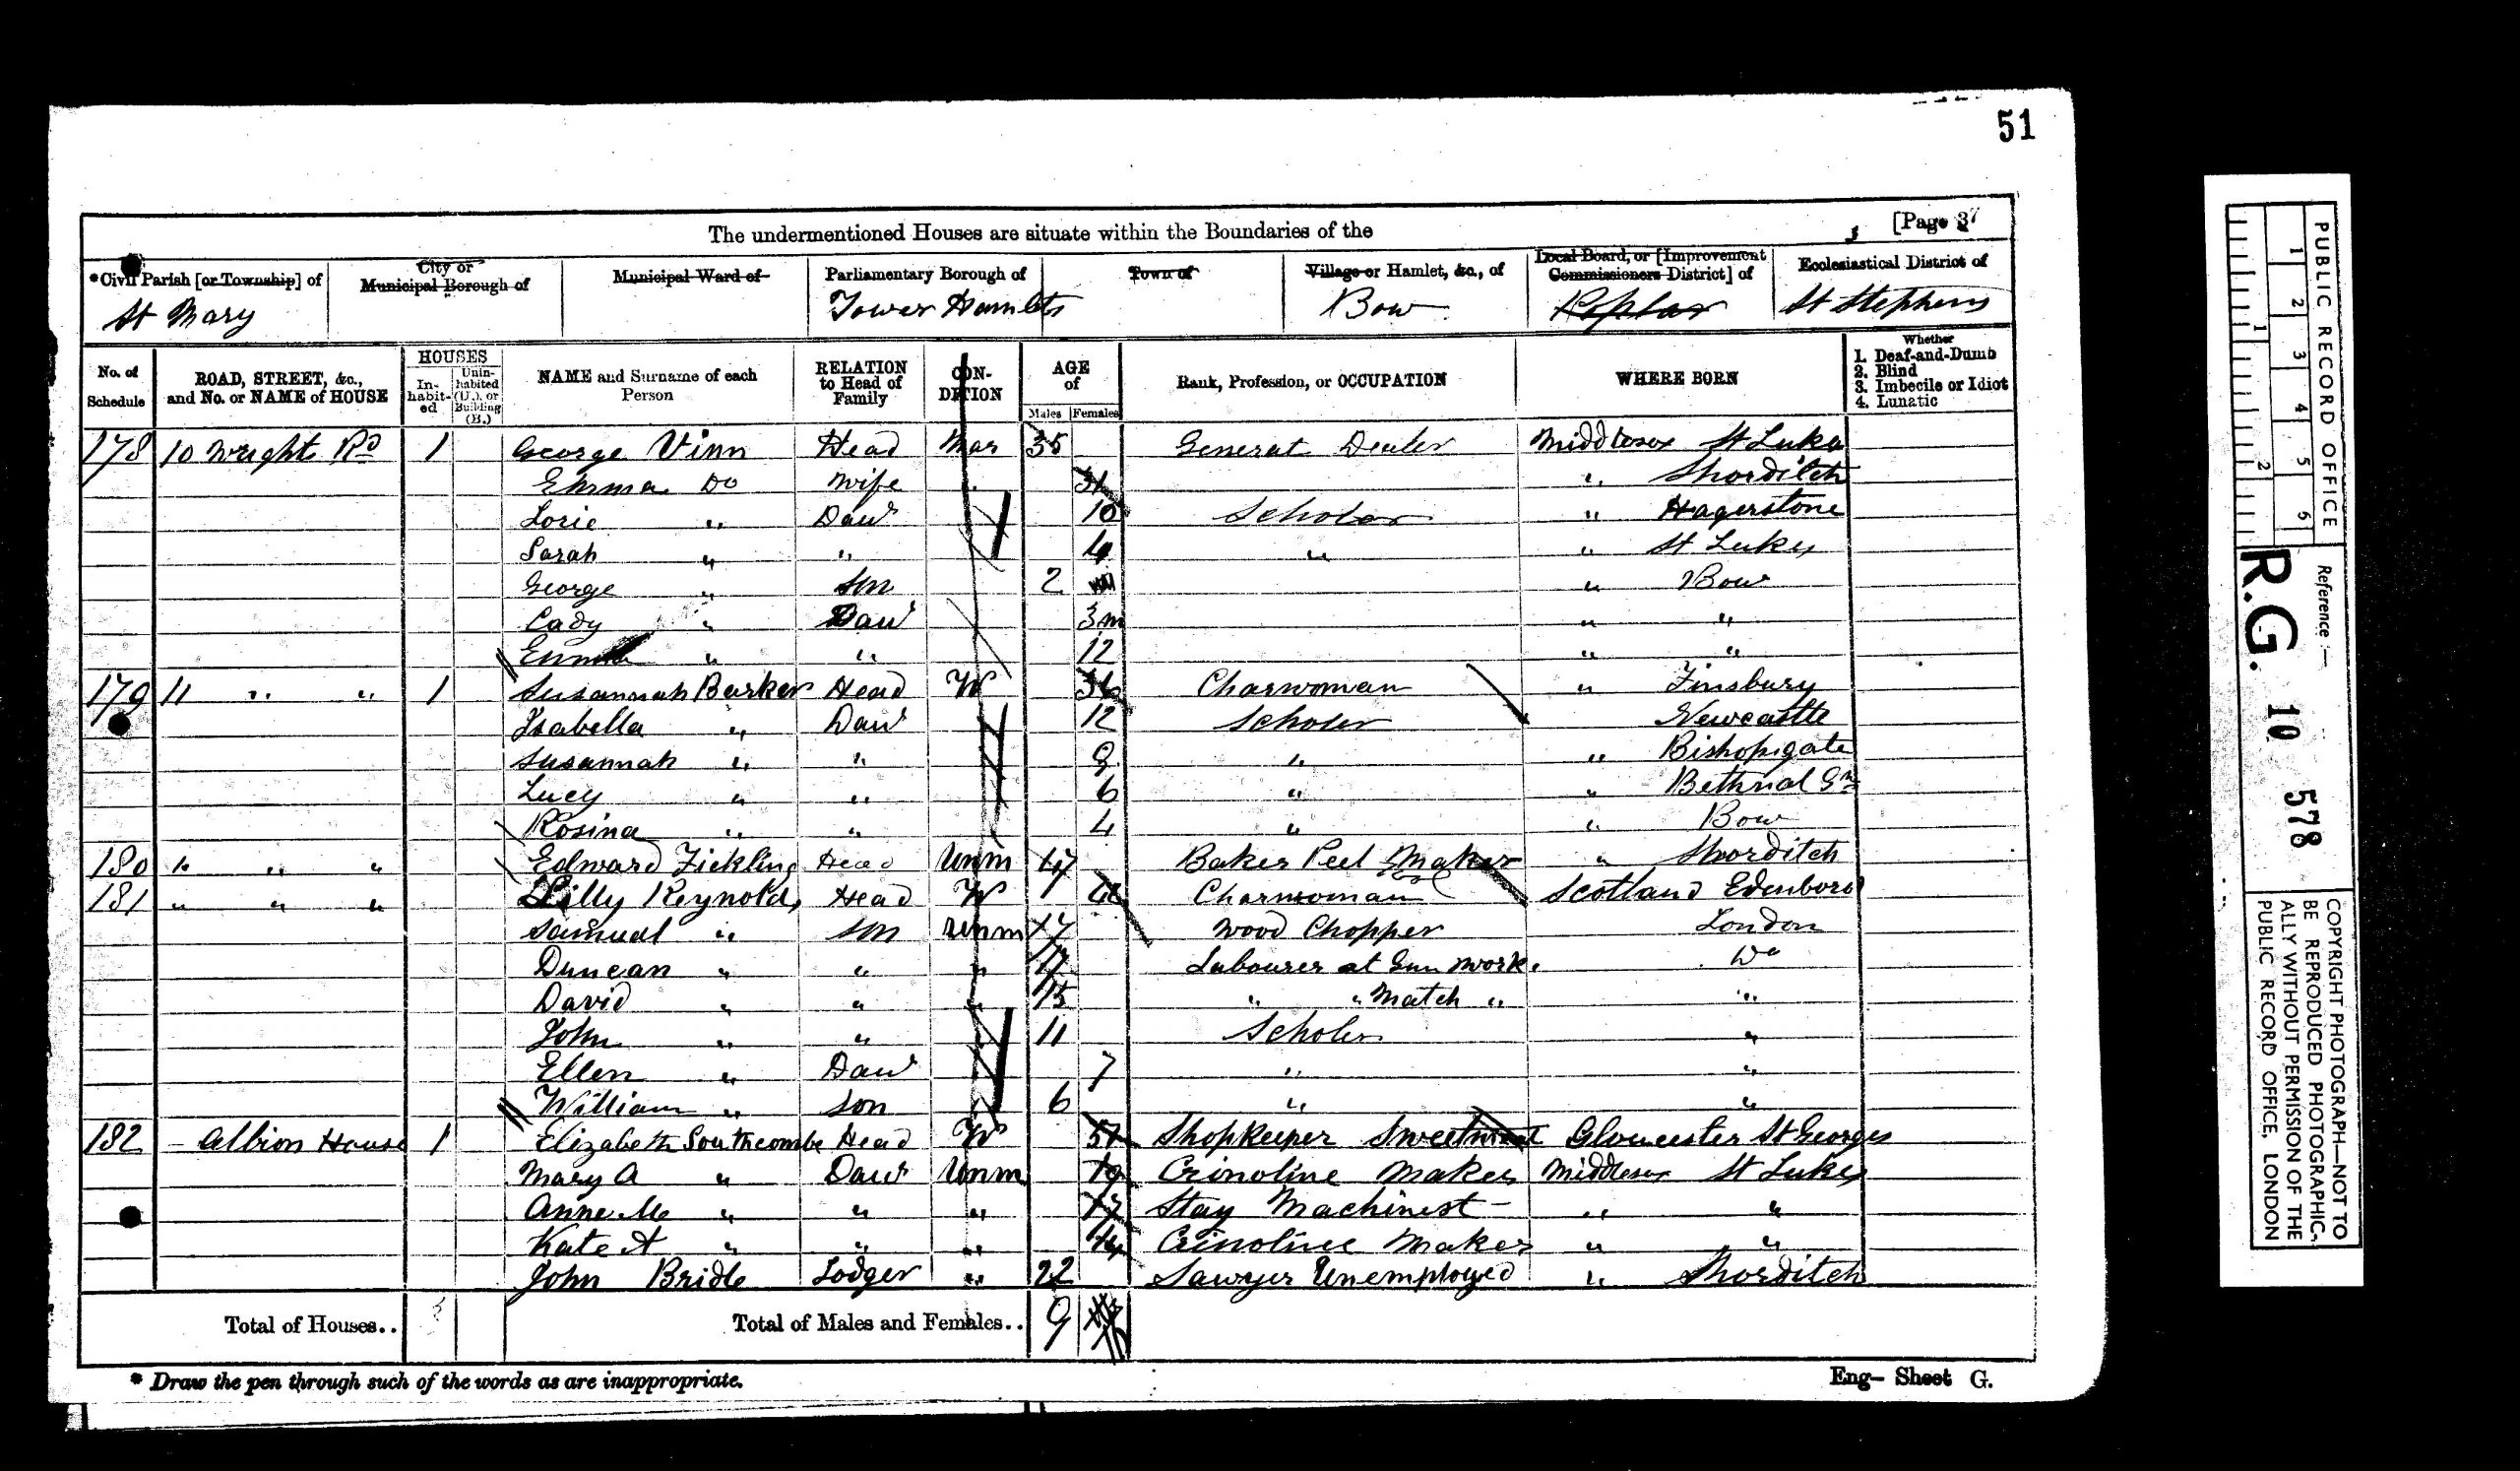 51
The undermentioned Houses are situate within the Boundaries of the [Page 37
*Civil Parish [or Township] of City or Municipal Borough of Municipal Ward of Parliamentary Borough of Town of Village or Hamlet, &c., of Local Board, or [Improvement Commissioners District] of Ecclesiastical District of
St Mary Tower Hamlets Bow Poplar St Stephens
No. of Schedule ROAD, STREET, &c., and No. or NAME of HOUSE HOUSES In-habit-ed Unin-habited (U.), or Building (B.) NAME and Surname of each Person RELATION to Head of Family CON-DITION AGE of Males Females Rank, Profession, or OCCUPATION WHERE BORN Whether 1. Deaf-and-Dumb 2. Blind 3. Imbecile or Idiot 4. Lunatic
178 10 Wright Rd 1 George Vinn Head Mar 35 General Dealer Middlesex St Lukes
Emma Do Wife 31 " Shorditch
" Daur 10 Scholar " Hagerstone
Sarah " " 4 " " St Lukes
George " Son 2 " Bow
Cady " Daur 3m " "
Emma " " 12 " "
179 11 " " 1 Susannah Barker Head W 36 Charwoman " Finsbury
Isabella " Daur 12 Scholar Newcastle
Susannah " " 9 " " Bishopsgate
Lucy " " 6 " " Bethnal Gn
Rosina " " 4 " " Bow
180 " " " Edward Fickling Head Unm 47 Baker Peel Maker " Shorditch
181 " " " Lilly Reynolds Head W Charwoman Scotland Edenboro
Samuel " Son Unm Wood Chopper London
Duncan " " " 17 Labourer at Gun Work. Do
David " " " 15 " " Match " "
John " " 11 Scholar "
Ellen " Daur 7 " "
William " Son 6 " "
182 - Albion House 1 Elizabeth Southcombe Head W 51 Shopkeeper Sweetmeat Gloucester St Georges
Mary A " Daur Unm 19 Crinoline Maker Middlesex St Lukes
Anne M " " " 17 Stay Machinest " "
Kate A " " " 14 Crinoline Maker " "
John Bridle Lodger " 22 Sawyer Unemployed " Shorditch
Total of Houses.. 3 Total of Males and Females.. 9
* Draw the pen through such of the words as are inappropriate.
Eng- Sheet G.
PUBLIC RECORD OFFICE
1 2 3 4 5 6
1 2
Reference :-
R.G. 10 578
COPYRIGHT PHOTOGRAPH—NOT TO
BE REPRODUCED PHOTOGRAPHIC-
ALLY WITHOUT PERMISSION OF THE
PUBLIC RECORD OFFICE, LONDON